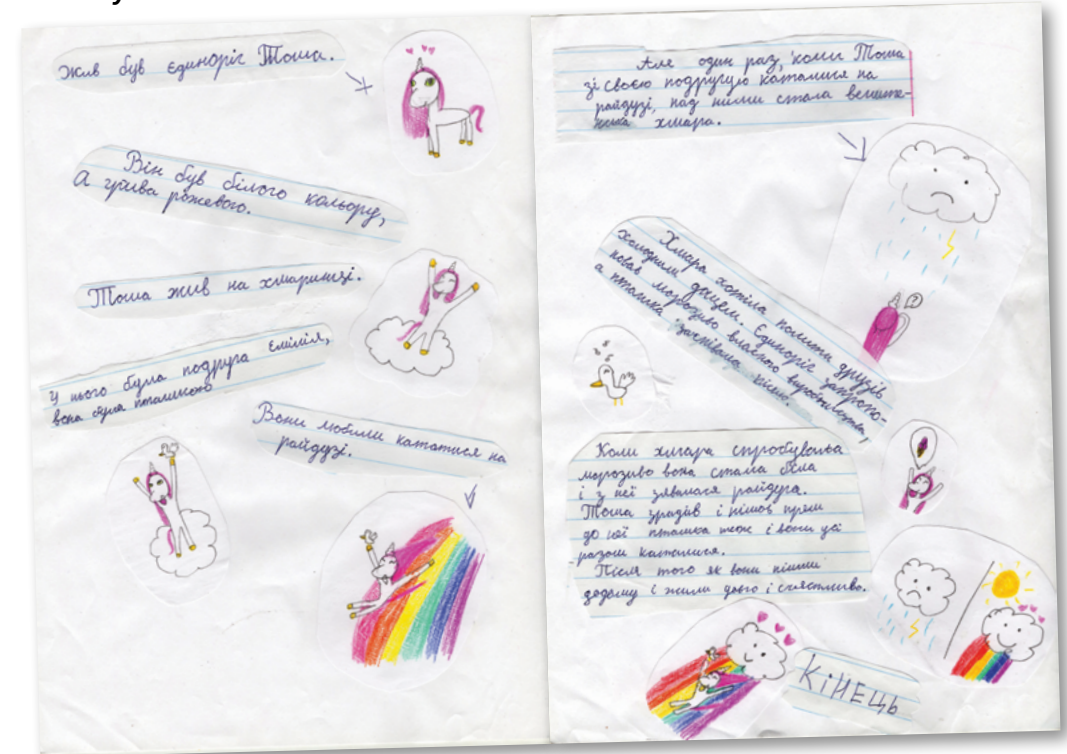 Жив був єдиноріг Тоша.
Він був білого кольору,
А грива рожевого.
Тоша жив на хмаринці.
У нього була подруга Емілія,
вона була пташкою
Вони любили кататися на
райдузі.
Але один раз, коли Тоша
зі своєю подругою каталися на
райдузі, над ними стала величе-
зна хмара.
Хмара хотіла полити друзів
холодним дощем. Єдиноріг запропо-
новав морозиво власного виробництва,
а пташка заспівала пісню.
?
Коли хмара спробувала
морозиво вона стала біла
і з неї зявилася райдуга.
Тоша зрадів і пішов прям
до неї пташка теж і вони усі
разом каталися.
Після того як вони пішли
додому і жили довго і счастливо.
КІНЕЦЬ